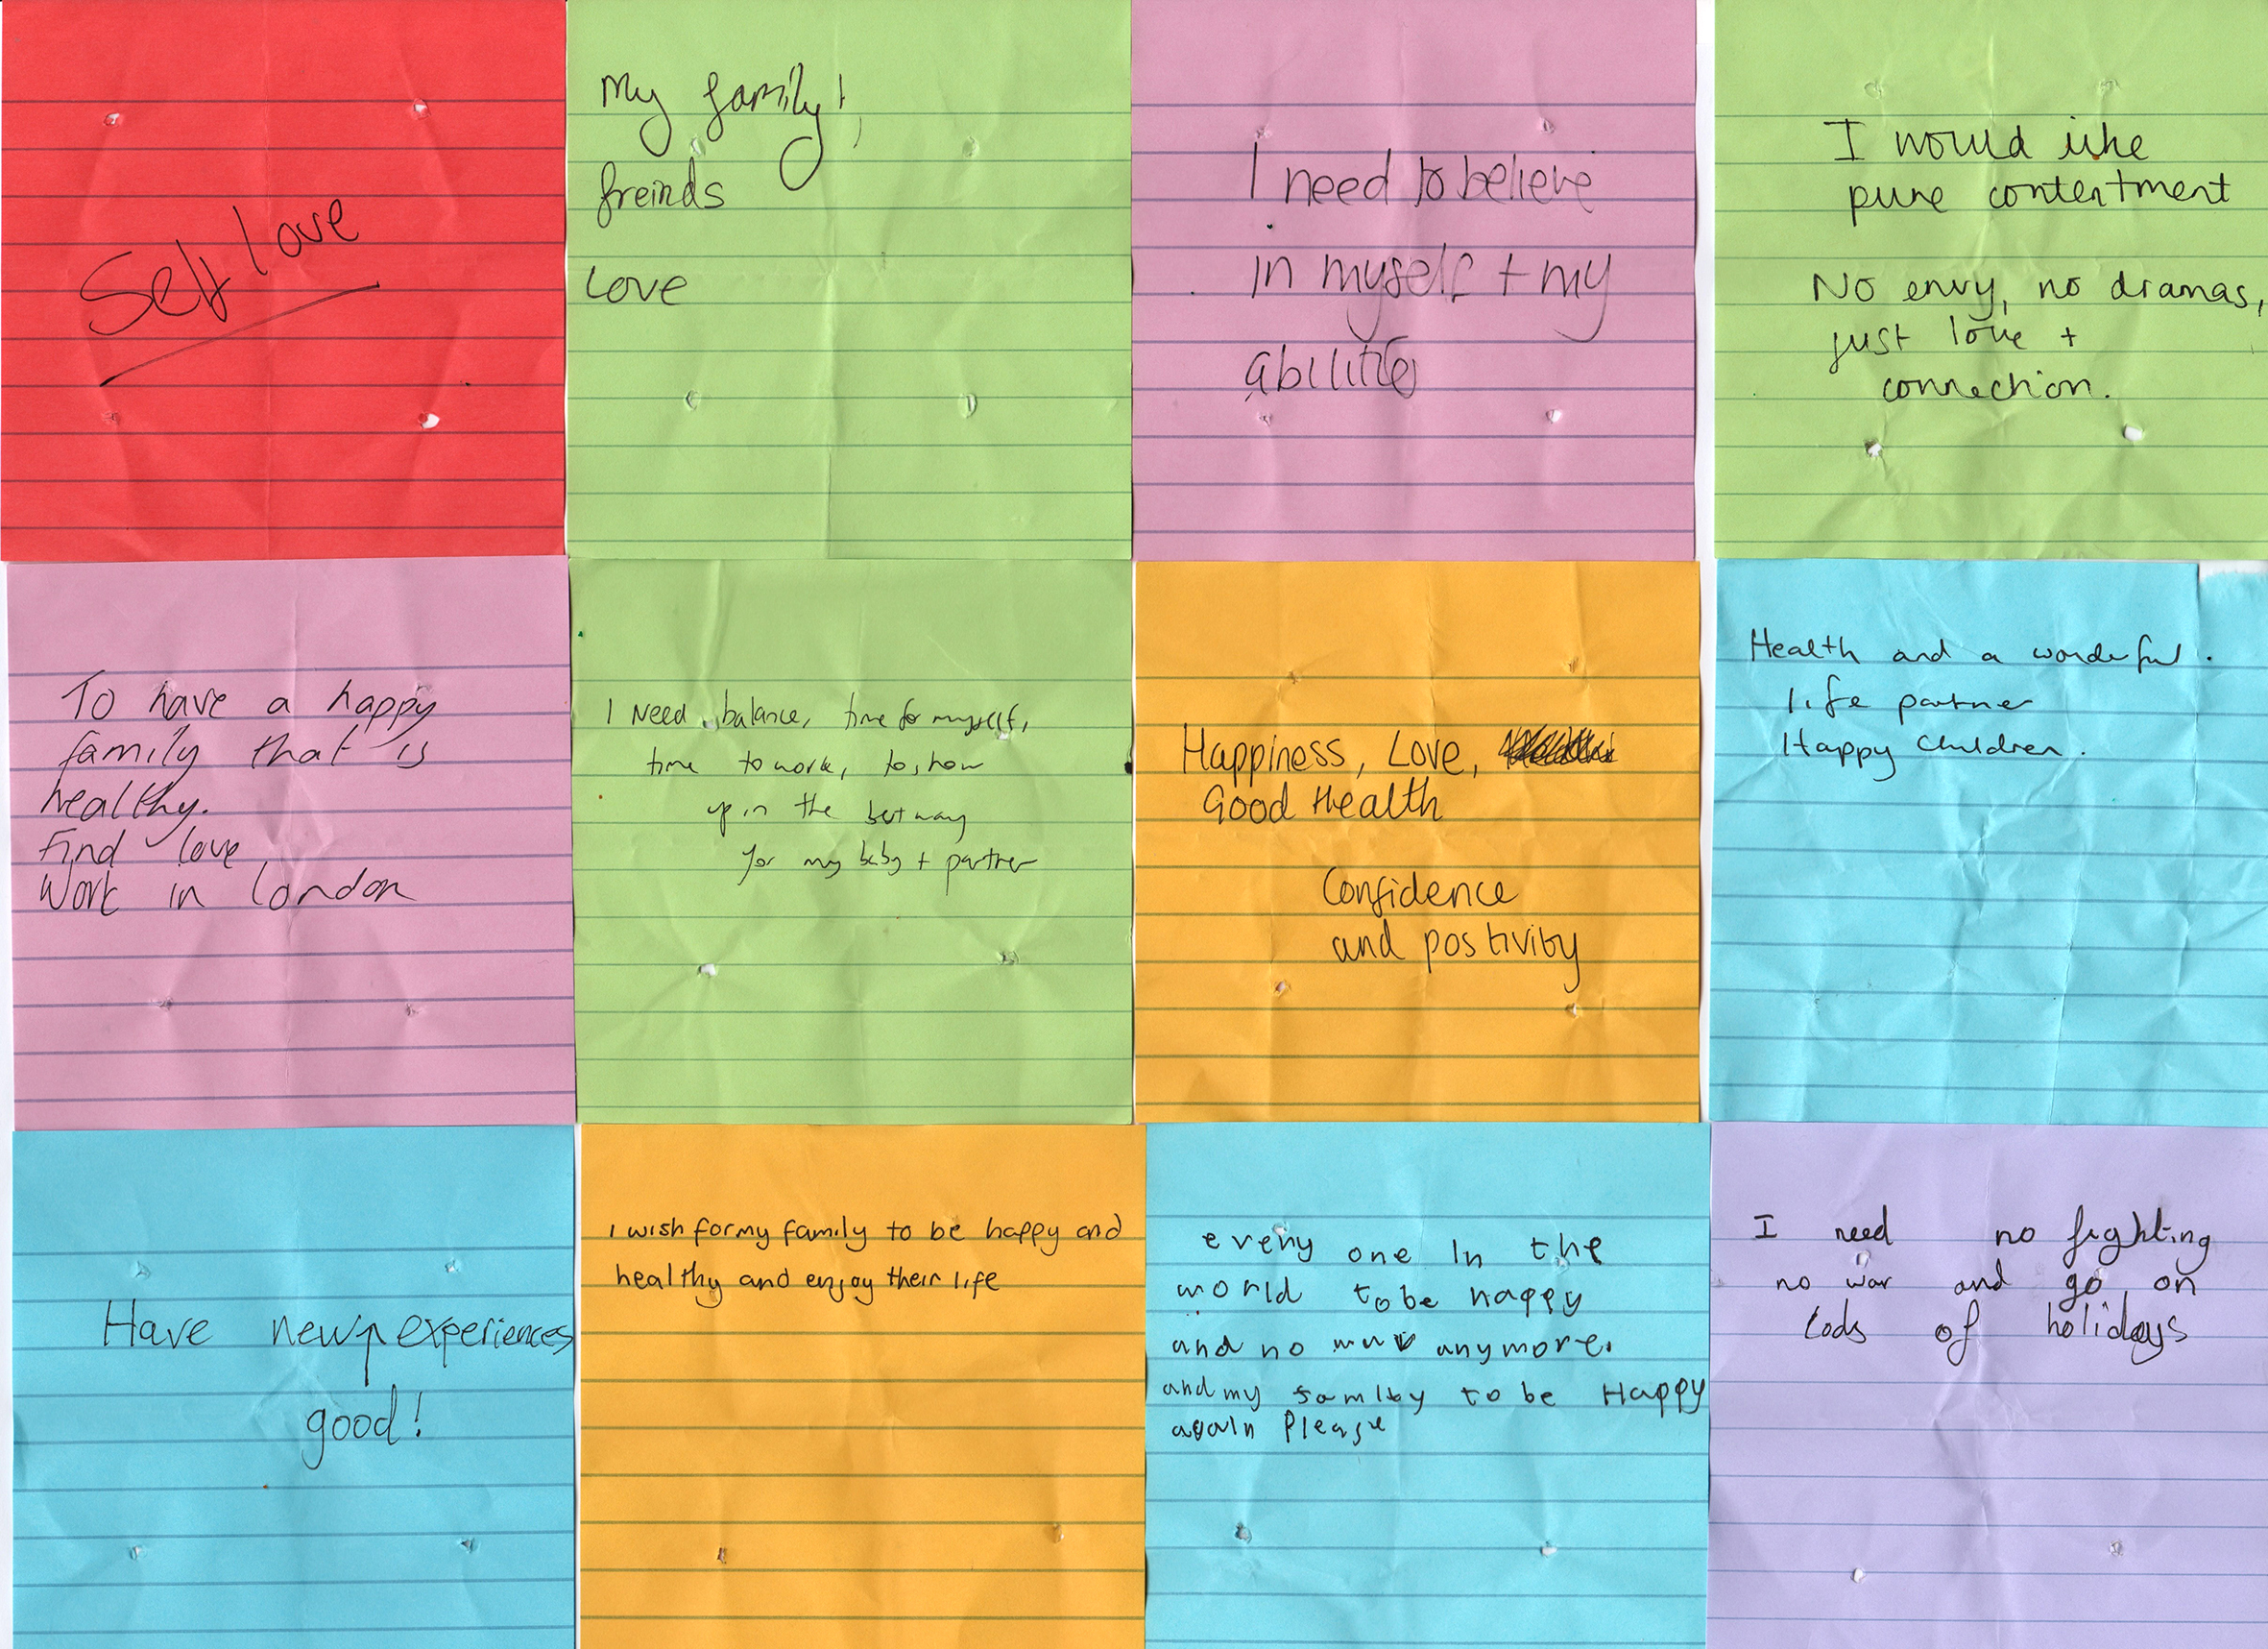 Self love
My family!,
freinds
Love
I need to believe
in myself + my
abilities
I would like
pure contentment
No envy, no dramas,
just love +
connection.
To have a happy
family that is
healthy.
Find love
Work in London
I Need balance, time for myself,
time to work, to show
up in the best way
for my baby + partner
Happiness, Love,
Good Health
Confidence
and postivity
Health and a wonderful.
life partner
Happy Children.
Have new experiences
good!
I wish for my family to be happy and
healthy and enjoy their life
every one in the
world to be happy
and no war anymore.
and my famlby to be Happy
again Please
I need no fighting
no war and go on
lods of holidays